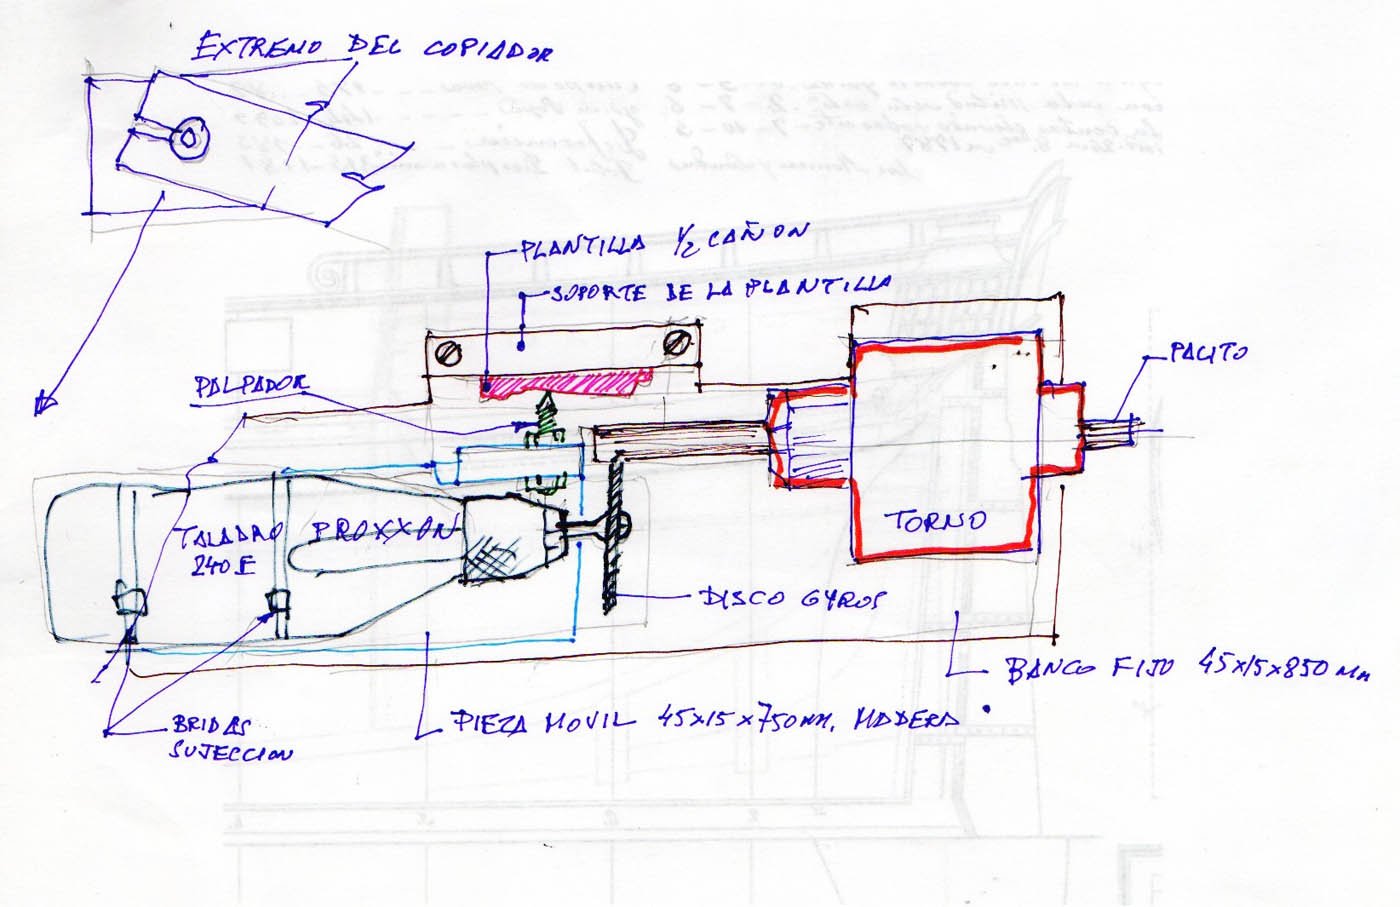 EXTREMO DEL COPIADOR
PLANTILLA 1/2 CAÑON
SOPORTE DE LA PLANTILLA
PALPADOR
PALITO
TALADRO PROXXON
240 E
TORNO
DISCO GYROS
BANCO FIJO 45x15x850 mm
PIEZA MOVIL 45x15x750 mm. MADERA
BRIDAS
SUJECCION